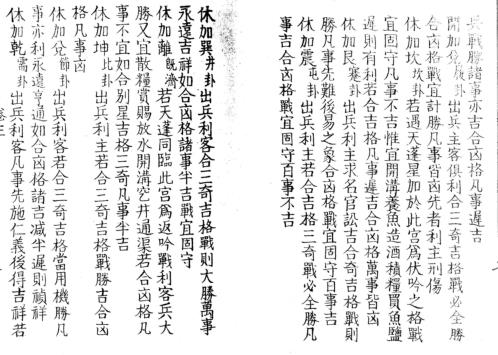 兵戰勝諸事亦吉合凶格凡事遲吉
開加兌履卦出兵主客俱利合三奇吉格戰必全勝
合凶格戰宜計勝凡事皆凶先者利主刑傷
休加坎坎卦若遇天逢星加於此宮為伏吟之格戰
宜固守凡事不吉惟宜開溝養魚造酒積糧買魚鹽
遲則有利若合吉格凡事遲吉合凶格萬事皆凶
休加艮蹇卦出兵利主求名官訟吉合奇吉格戰則
勝凡事先難後易之象合凶格戰宜固守百事吉
休加震屯卦出兵利主若合吉格三奇戰必全勝凡
事吉合凶格戰宜固守百事不吉
休加巽井卦出兵利客合三奇吉格戰則大勝萬事
永遠吉祥如合凶格諸事半吉戰宜固守
休加離既濟若天逢同臨此宮為返吟戰利客兵大
勝又宜散糧賞賜放水開溝穵井通渠若合凶格凡
事不宜如合別星吉格三奇凡事半吉
休加坤比卦出兵利主若合三奇吉格戰勝吉合凶
格凡事凶
休加兌節卦出兵利客若合三奇吉格當用機勝凡
事亦利永遠亨通如合凶格諸吉減半遲則禎祥
休加乾需卦出兵利客凡事先施仁義後得吉祥若
卷三